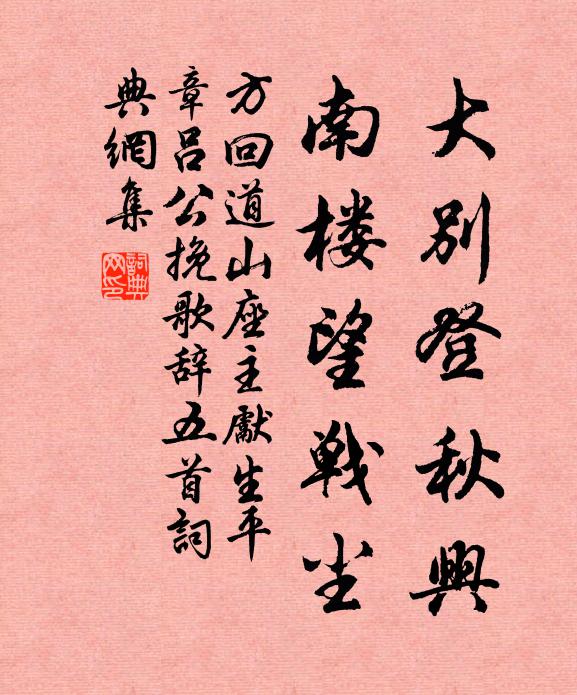 大别登秋興
南楼望戦尘
方回道山座主獻生平
章呂公挽歌辞五首詞
典網集
詞典網印